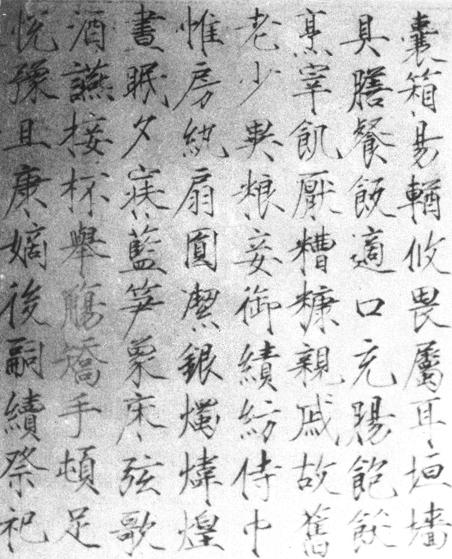 囊箱易輶攸畏屬耳垣墻
具膳餐飯適口充腸飽飫
烹宰飢厭糟糠親戚故舊
老少異粮妾御績紡侍巾
帷房紈扇圓潔銀燭煒煌
晝眠夕寐藍笋象床弦歌
酒讌接杯舉觴矯手頓足
悅豫且康嫡後嗣續祭祀